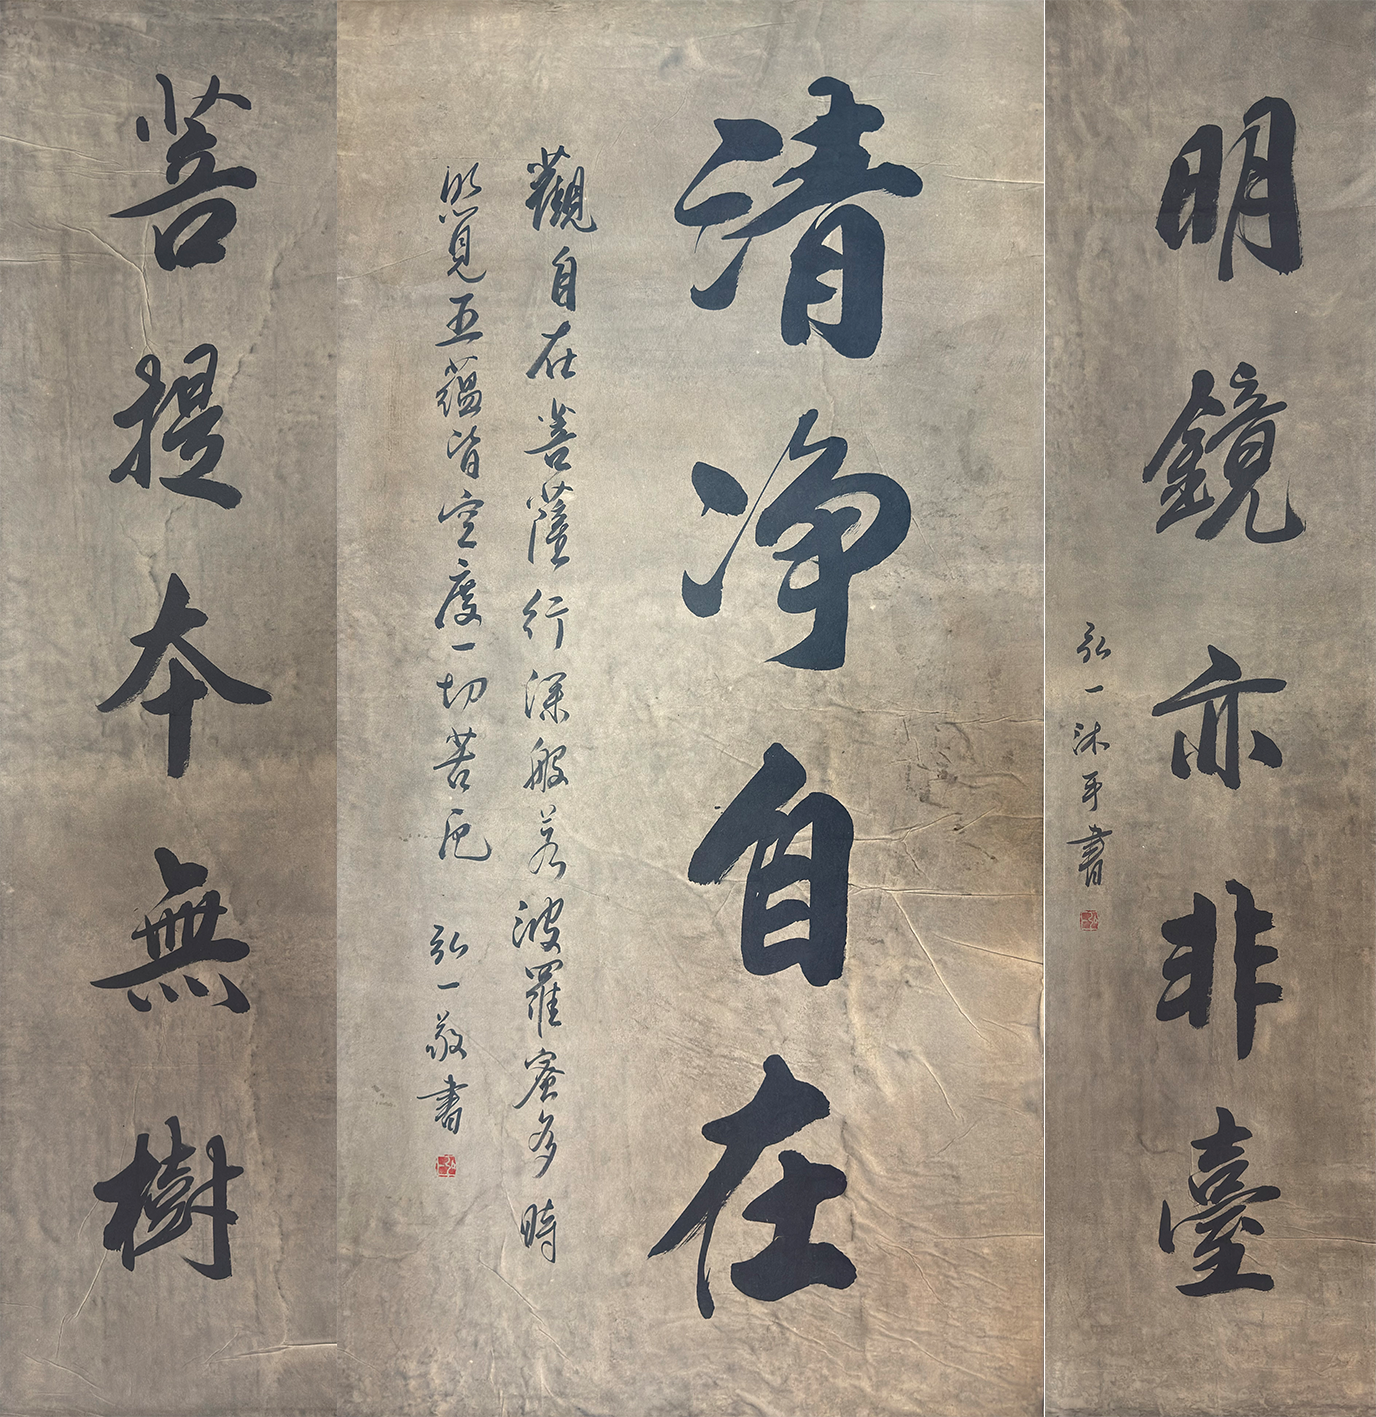 明鏡亦非臺
弘一沐手書
清净自在
觀自在菩薩行深般若波羅蜜多時
照見五蘊皆空度一切苦厄 弘一敬書
菩提本無樹